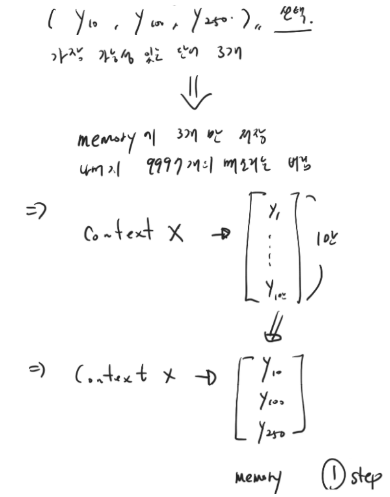 ( y10 , y100 , y250 ). 선택.
가장 가능성 있는 단어 3개
⇓
memory 에 3개 만 저장
나머지 9997개의 메모리는 버림
⇒ Context X → [ y1 ⋮ y1만 ] 1만
⇓
⇒ Context x → [ y10 y100 y250 ]
memory ① step